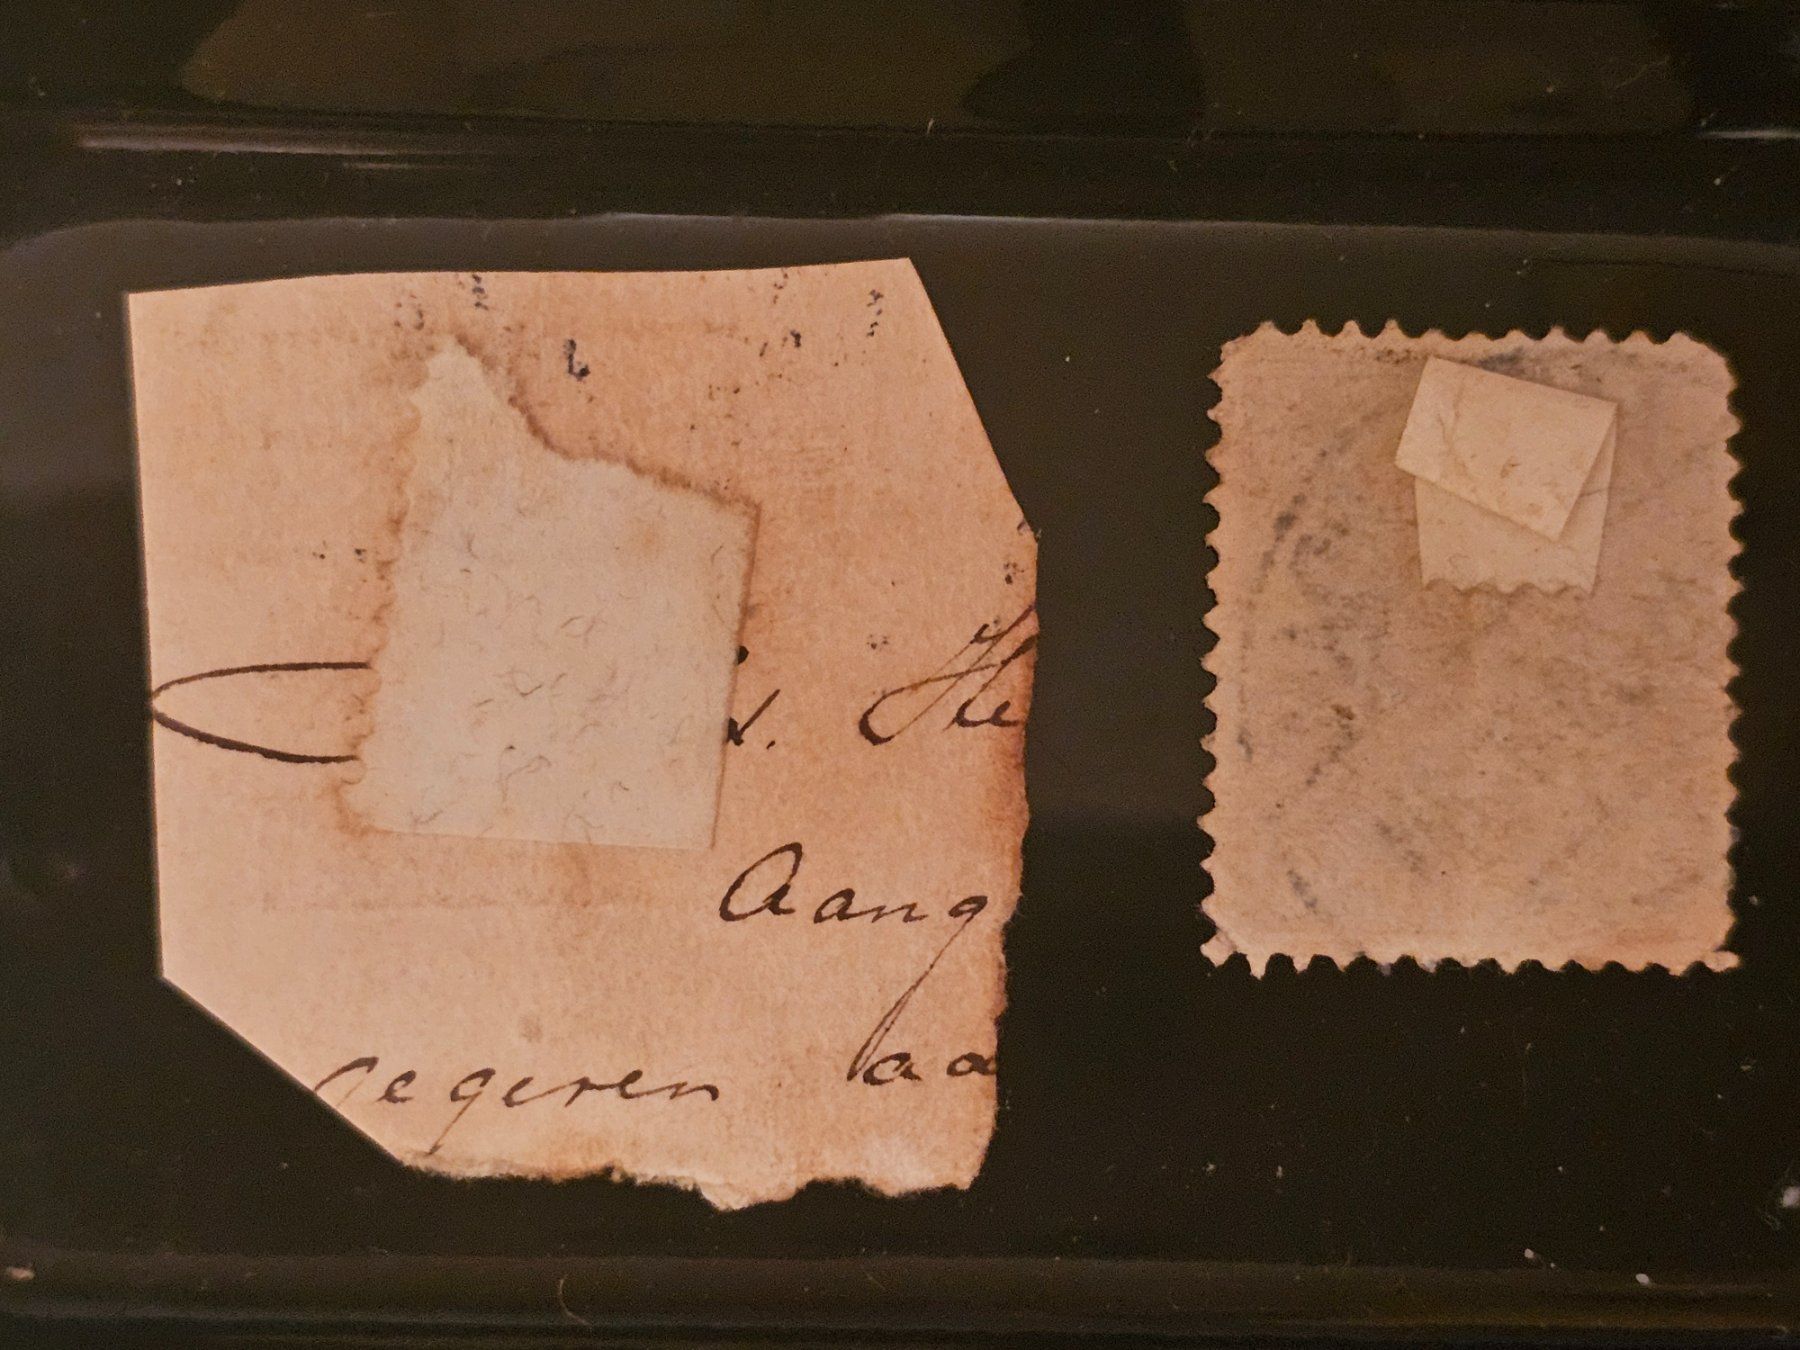 He
Aang
gegeven aa